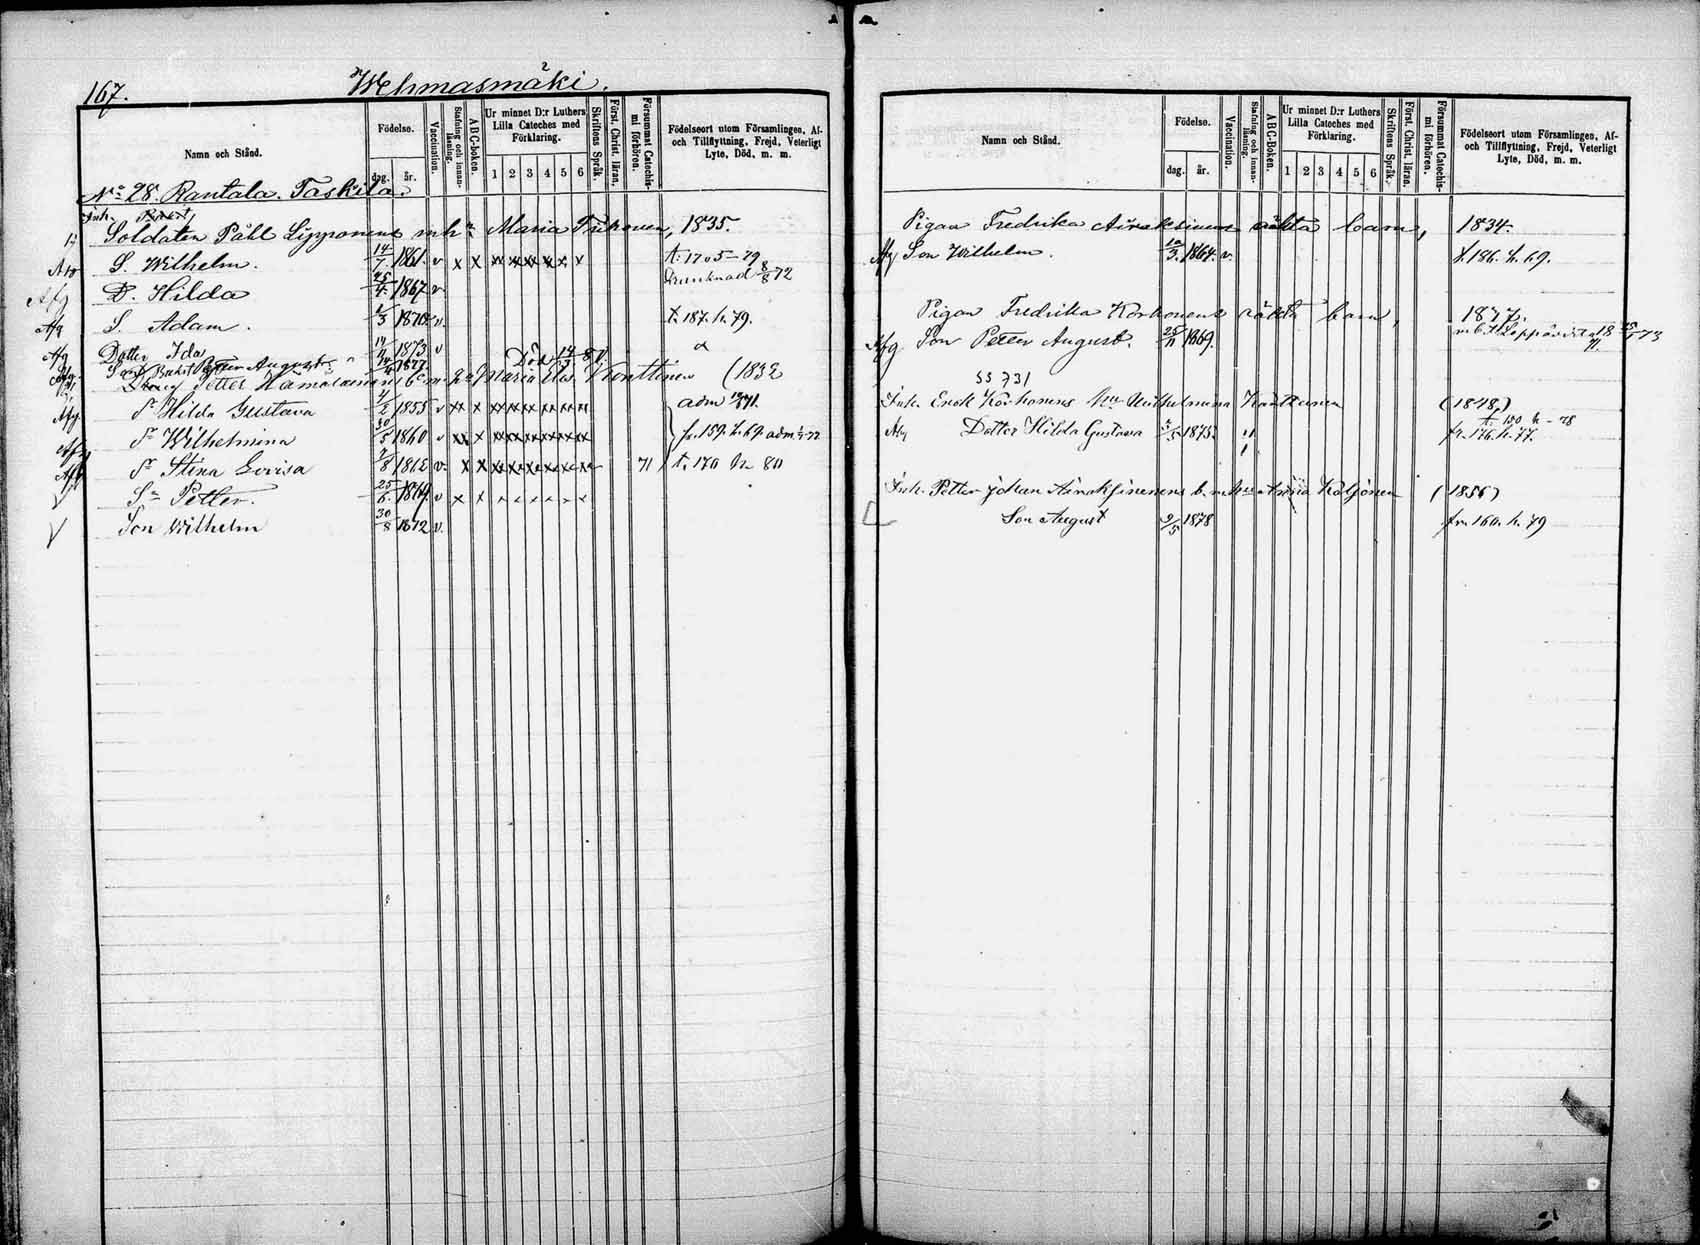 167.
Wehmasmäki.
Namn och Stånd.
Födelse.
dag. år.
Vaccination.
Stafning och innan-läsning.
ABC-boken.
Ur minnet D:r Luthers Lilla Cateches med Förklaring.
1 2 3 4 5 6
Skriftens Språk.
Först. Christ. läran.
Försummat Catechis-mi förhören.
Födelseort utom Församlingen, Af- och Tillflyttning, Frejd, Veterligt Lyte, Död, m. m.
No 28. Rantala. Taskila.
Inh.
Soldaten Påhl Lipponens m h:u Maria 1835.
S. Wilhelm. 14/7 1861. v t. 170 79
D. Hilda 25/4 1867 v. Drunknad 8/8 72
S. Adam. 1870 v. t. 187. h. 79.
Dotter Ida 1873 v
Petter August Död 14/3 80
Petter Hämäläinens m. h:u Maria Elis. Konttinen (1832
Afg. Hilda Gustava 4/2 1855 v adm 71.
Wilhelmina 30/5 1860 v fr. 159. h. 69. adm. 72
Stina Lovisa 7/8 1862 v. 71 t. 170 h 80
Sn Petter. 25/6 1869 v
Son Wilhelm 30/8 1872 v.
Namn och Stånd.
Födelse.
dag. år.
Vaccination.
Stafning och innan-läsning.
ABC-boken.
Ur minnet D:r Luthers Lilla Cateches med Förklaring.
1 2 3 4 5 6
Skriftens Språk.
Först. Christ. läran.
Försummat Catechis-mi förhören.
Födelseort utom Församlingen, Af- och Tillflyttning, Frejd, Veterligt Lyte, Död, m. m.
Pigan Fredrika Airaksinens oäkta barn, 1834.
Afg Son Wilhelm. 1864. v. t. 186. h. 69.
Pigan Fredrika Korhonens oäkta barn, 1837.
Afg Son Petter August. 25/11 1869.
SS 731
Inh. Enok Korhonens h:u Wilhelmina (1848)
t. 150 h - 78
Afg Dotter Hilda Gustava 1875. fr. 176. h. 77.
Inh. Petter Johan Airaksinens b. m. h:u (1856)
Son August 9/5 1878 fr. 160. h. 79